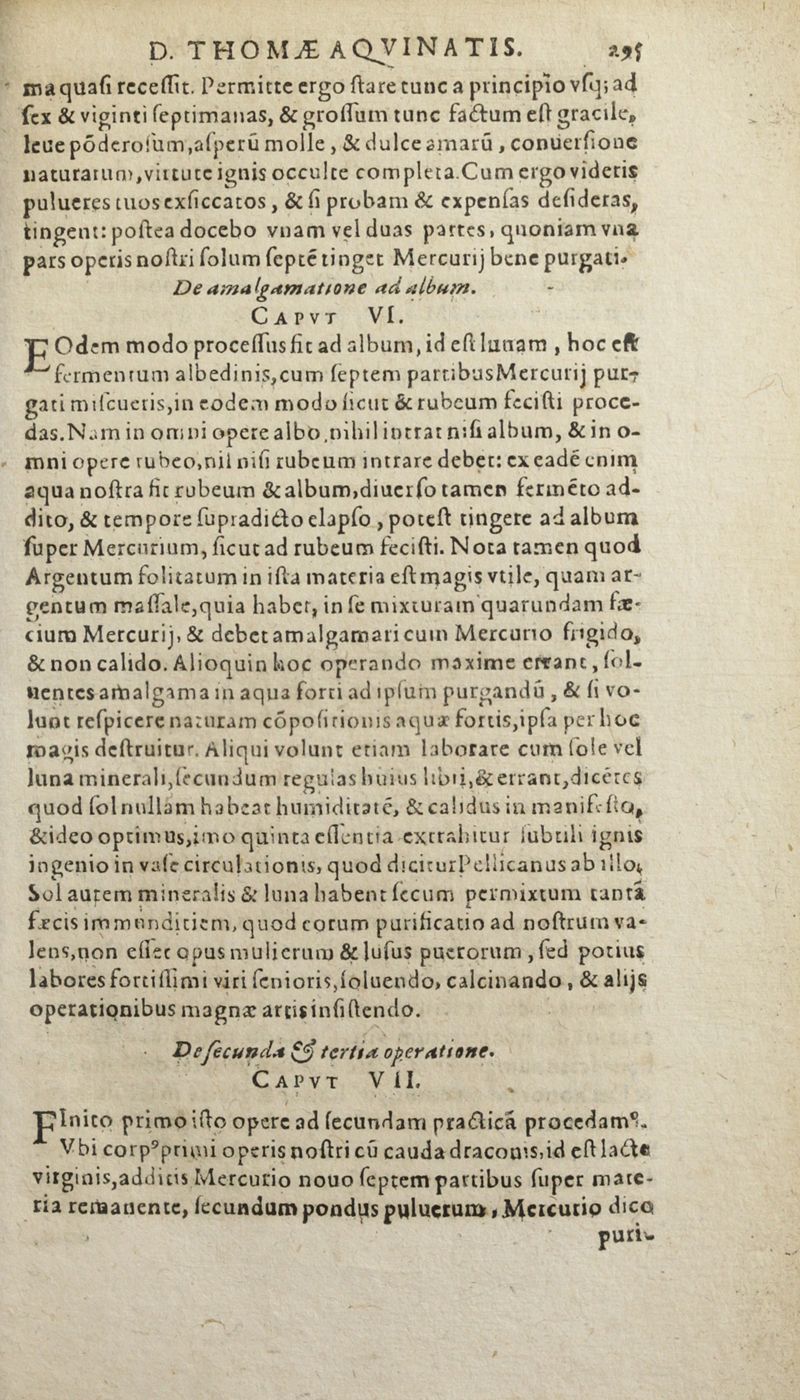 D. THOMÆ AQVINATIS. 295
ma quaſi receſſit. Permitte ergo ſtare tunc a principio vſq; ad
ſex & viginti ſeptimanas, & groſſum tunc factum eſt gracile,
leue pōderoſum, aſperū molle, & dulce amarū, conuerſione
naturarum, virtute ignis occulte completa. Cum ergo videris
pulueres tuos exſiccatos, & ſi probam & expenſas deſideras,
tingent: poſtea docebo vnam vel duas partes, quoniam vna
pars operis noſtri ſolum ſeptē tinget Mercurij bene purgati.
De amalgamatione ad album.
CAPVT VI.
EOdem modo proceſſus fit ad album, id eſt lunam, hoc eſt
fermentum albedinis, cum ſeptem partibus Mercurij pur-
gati miſcueris, in eodem modo ſicut & rubeum feciſti proce-
das. Nam in omni opere albo, nihil intrat niſi album, & in o-
mni opere rubeo, nil niſi rubeum intrare debet: ex eadē enim
aqua noſtra fit rubeum & album, diuerſo tamen fermēto ad-
dito, & tempore ſupradicto elapſo, poteſt tingere ad album
ſuper Mercurium, ſicut ad rubeum feciſti. Nota tamen quod
Argentum folitatum in iſta materia eſt magis vtile, quam ar-
gentum maſſale, quia habet, in ſe mixturam quarundam fæ-
cium Mercurij, & debet amalgamari cum Mercurio frigido,
& non calido. Alioquin hoc operando maxime errant, ſol-
uentes amalgama in aqua forti ad ipſum purgandū, & ſi vo-
lunt reſpicere naturam cōpoſitionis aquæ fortis, ipſa per hoc
magis deſtruitur. Aliqui volunt etiam laborare cum ſole vel
luna minerali, ſecundum regulas huius libri, & errant, dicētes
quod ſol nullam habeat humiditatē, & calidus in manifeſto,
& ideo optimus, imo quinta eſſentia extrahitur ſubtili ignis
ingenio in vaſe circulationis, quod dicitur Pellicanus ab illo.
Sol autem mineralis & luna habent ſecum permixtum tantā
fæcis immunditiem, quod eorum purificatio ad noſtrum va-
lens, non eſſet opus mulierum & luſus puerorum, ſed potius
labores fortiſſimi viri ſenioris, ſoluendo, calcinando, & alijs
operationibus magnæ artis inſiſtendo.
De ſecunda & tertia operatione.
CAPVT VII.
FInito primo iſto opere ad ſecundam practicā procedamꝰ.
Vbi corpꝰ primi operis noſtri cū cauda draconis, id eſt lacte
virginis, additis Mercurio nouo ſeptem partibus ſuper mate-
ria remanente, ſecundum pondus puluerum, Mercurio dico
puri-